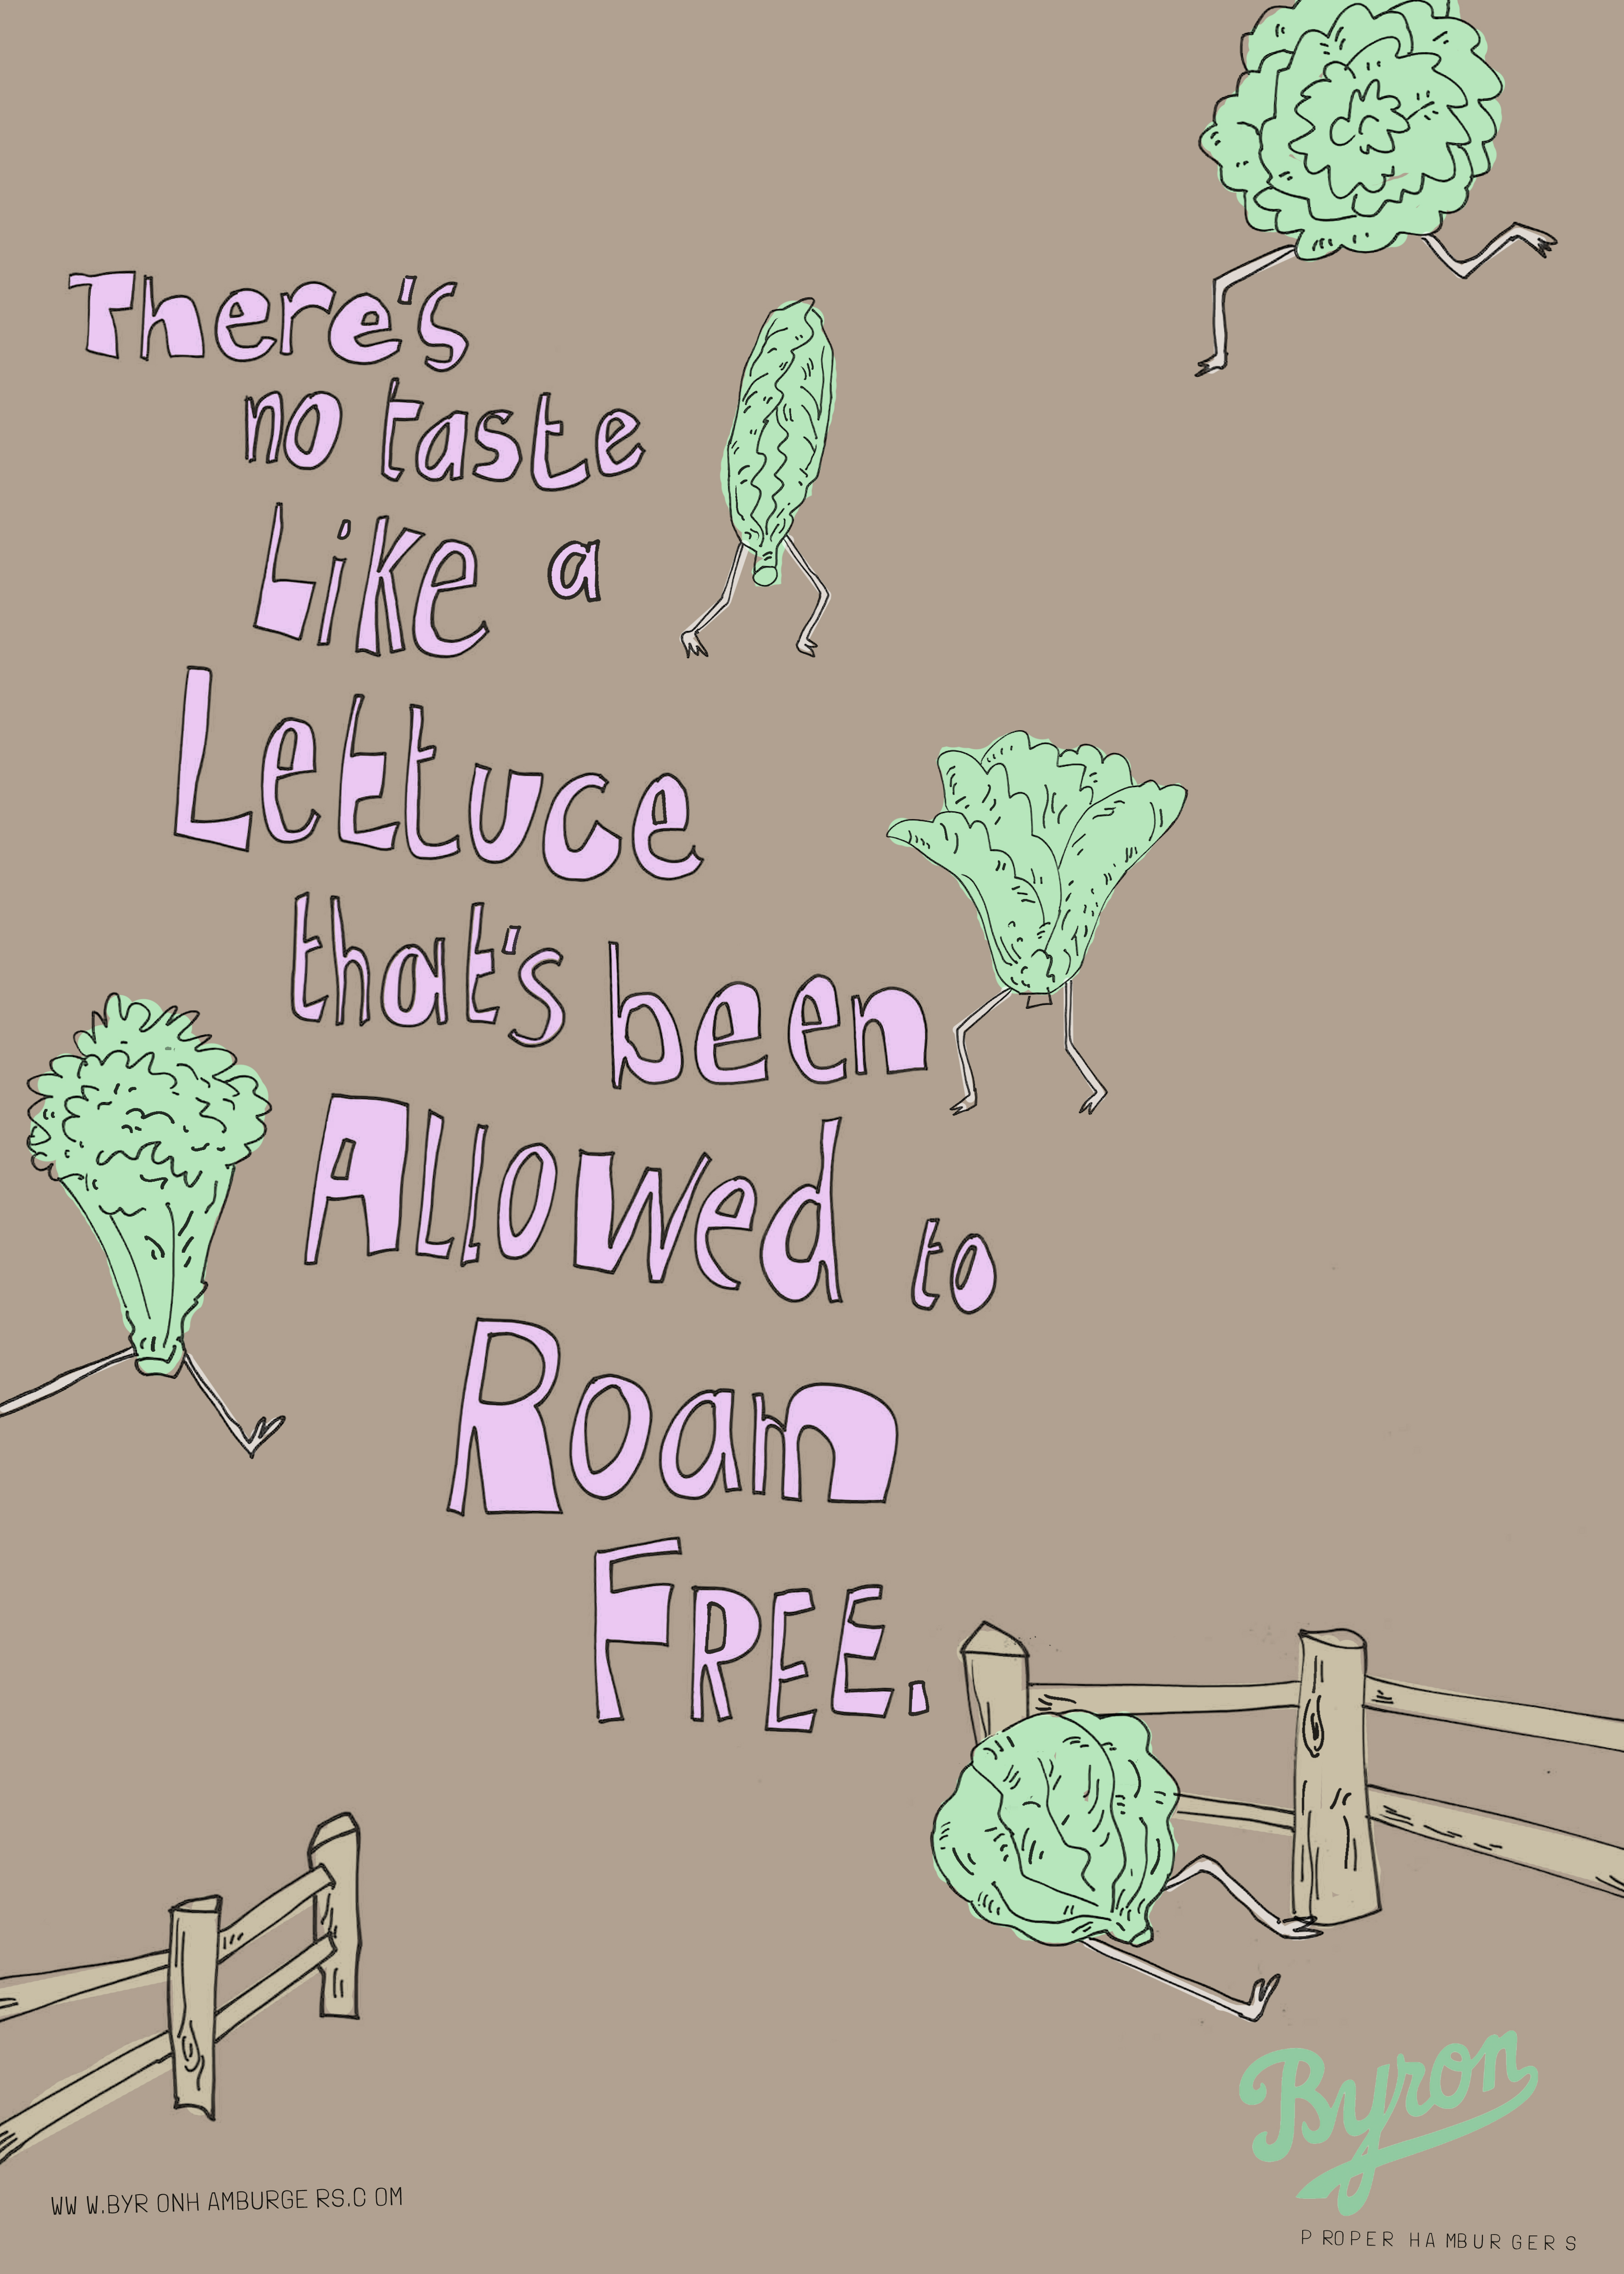 There's
no taste
Like a
Lettuce
that's been
Allowed to
Roam
FREE.
WWW.BYRONHAMBURGERS.COM
Byron
PROPER HAMBURGERS